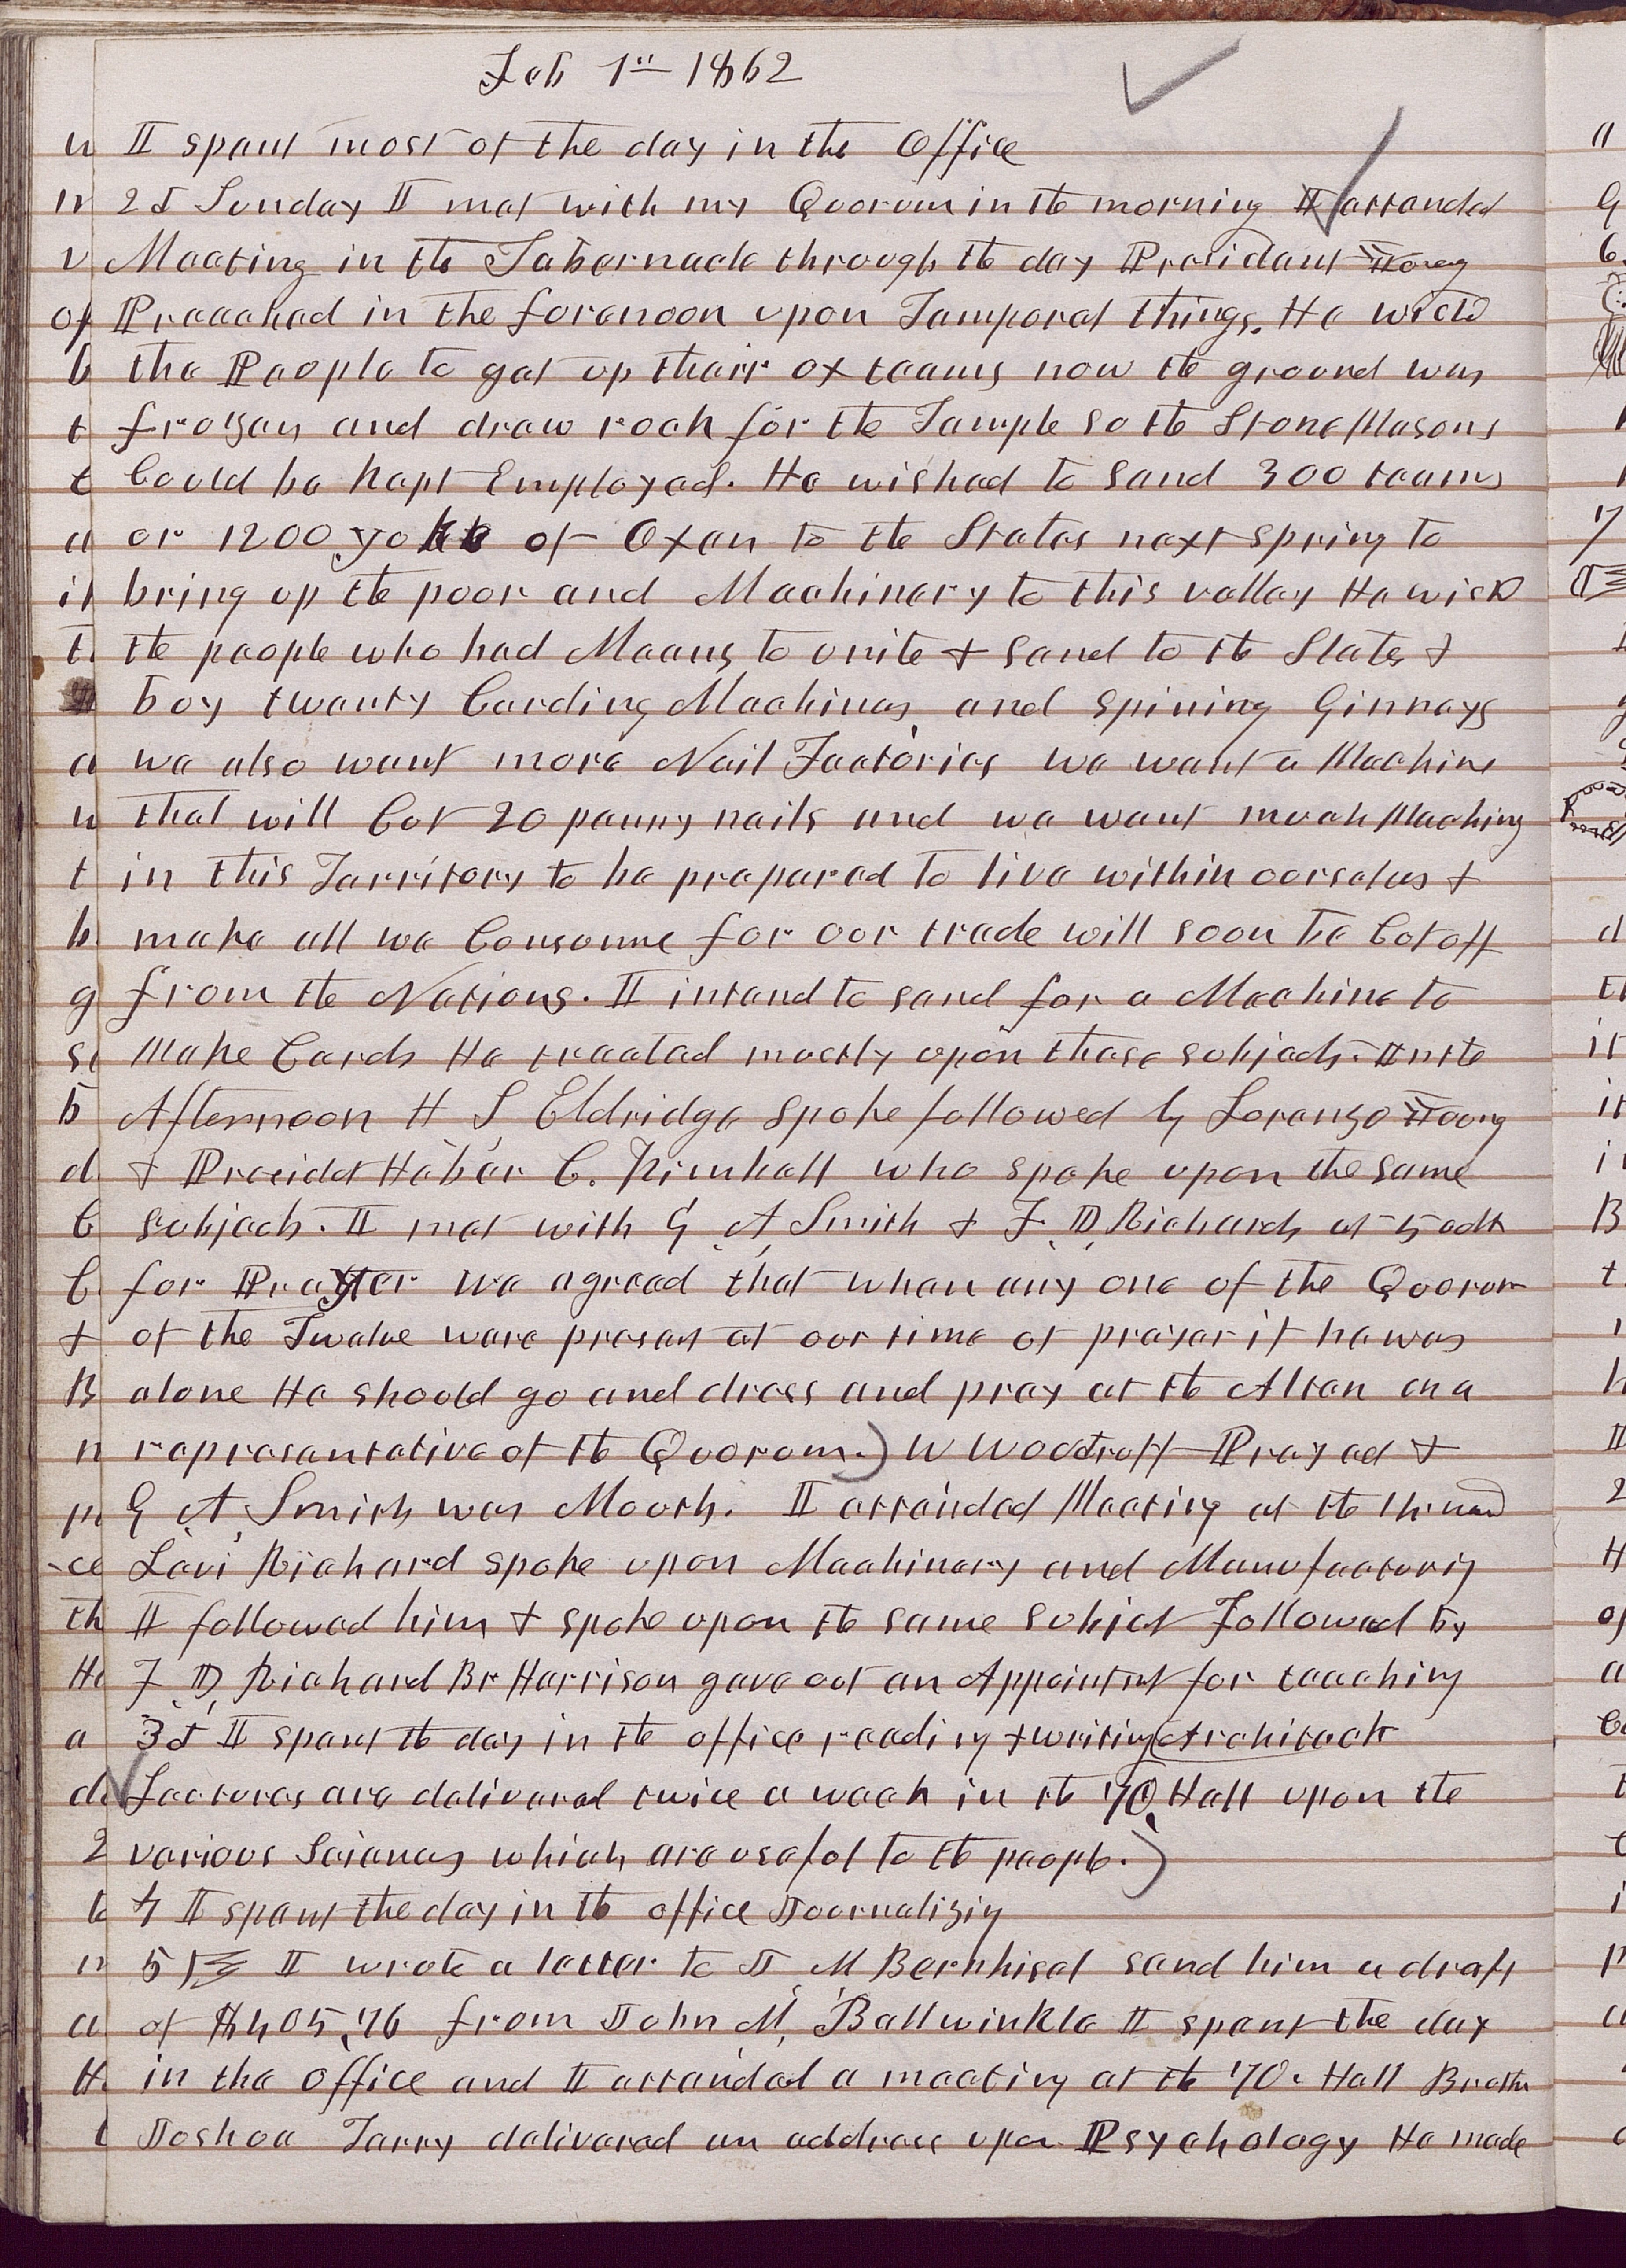 Feb 1st 1862
I spent most of the day in the Office
2d Sunday I met with my Quorum in the morning I attended
Meeting in the Tabernacle through the day President Young
Preeached in the forenoon upon Temporal things. He wishd
the People to get up their ox teams now the ground was
frozen and draw rock for the Temple so the Stone Masons
Could be kept Employed. He wished to send 300 teams
or 1200 yoke of Oxen to the States next spring to
bring up the poor and Machinery to this valley He wishd
the people who had Means to unite & send to the States &
buy twenty Carding Machines, and spining Ginneys
we also want more Nail Factories we want a Machine
that will Cut 20 penny nails and we want much Machiny
in this Territory to be prepared to live within ourselves &
make all we Consume for our trade will soon be Cut off
from the Nations. I intend to send for a Machine to
make Cards He treated mostly upon these subjects. In the
Afternoon H S Eldridge spoke followed by Lorenzo Young
& Presidet Heber C. Kimball who spoke upon the same
subjects. I met with G. A. Smith & F. D. Richards at 5 oclk
for Prayer we agreed that when any one of the Quorum
of the Twelve were present at our time of prayer if he was
alone He should go and dress and pray at the Altar as a
representative of the Quorum.) W Woodruff Prayed &
G. A. Smith was Mouth. I attended Meeting at the 14 ward
Levi Richard spoke upon Machinery and Manufactoriy
I followed him & spoke upon the same subject Followed by
F. D. Richard Br Harrison gave out an Appointmt for teeching
3d I spent the day in the office reading & writing (Architect
Lectures are delivered twice a week in the 70, Hall upon the
various Sciences which are useful to the people.)
4 I spent the day in the office Journalizing
5 I wrote a letter to J M Bernhisel send him a draft
of $405,76 from John M, Bollwinkle I spent the day
in the office and I attended a meeting at the 70. Hall Brother
Joshua Terry delivered an address upon Psychology He made